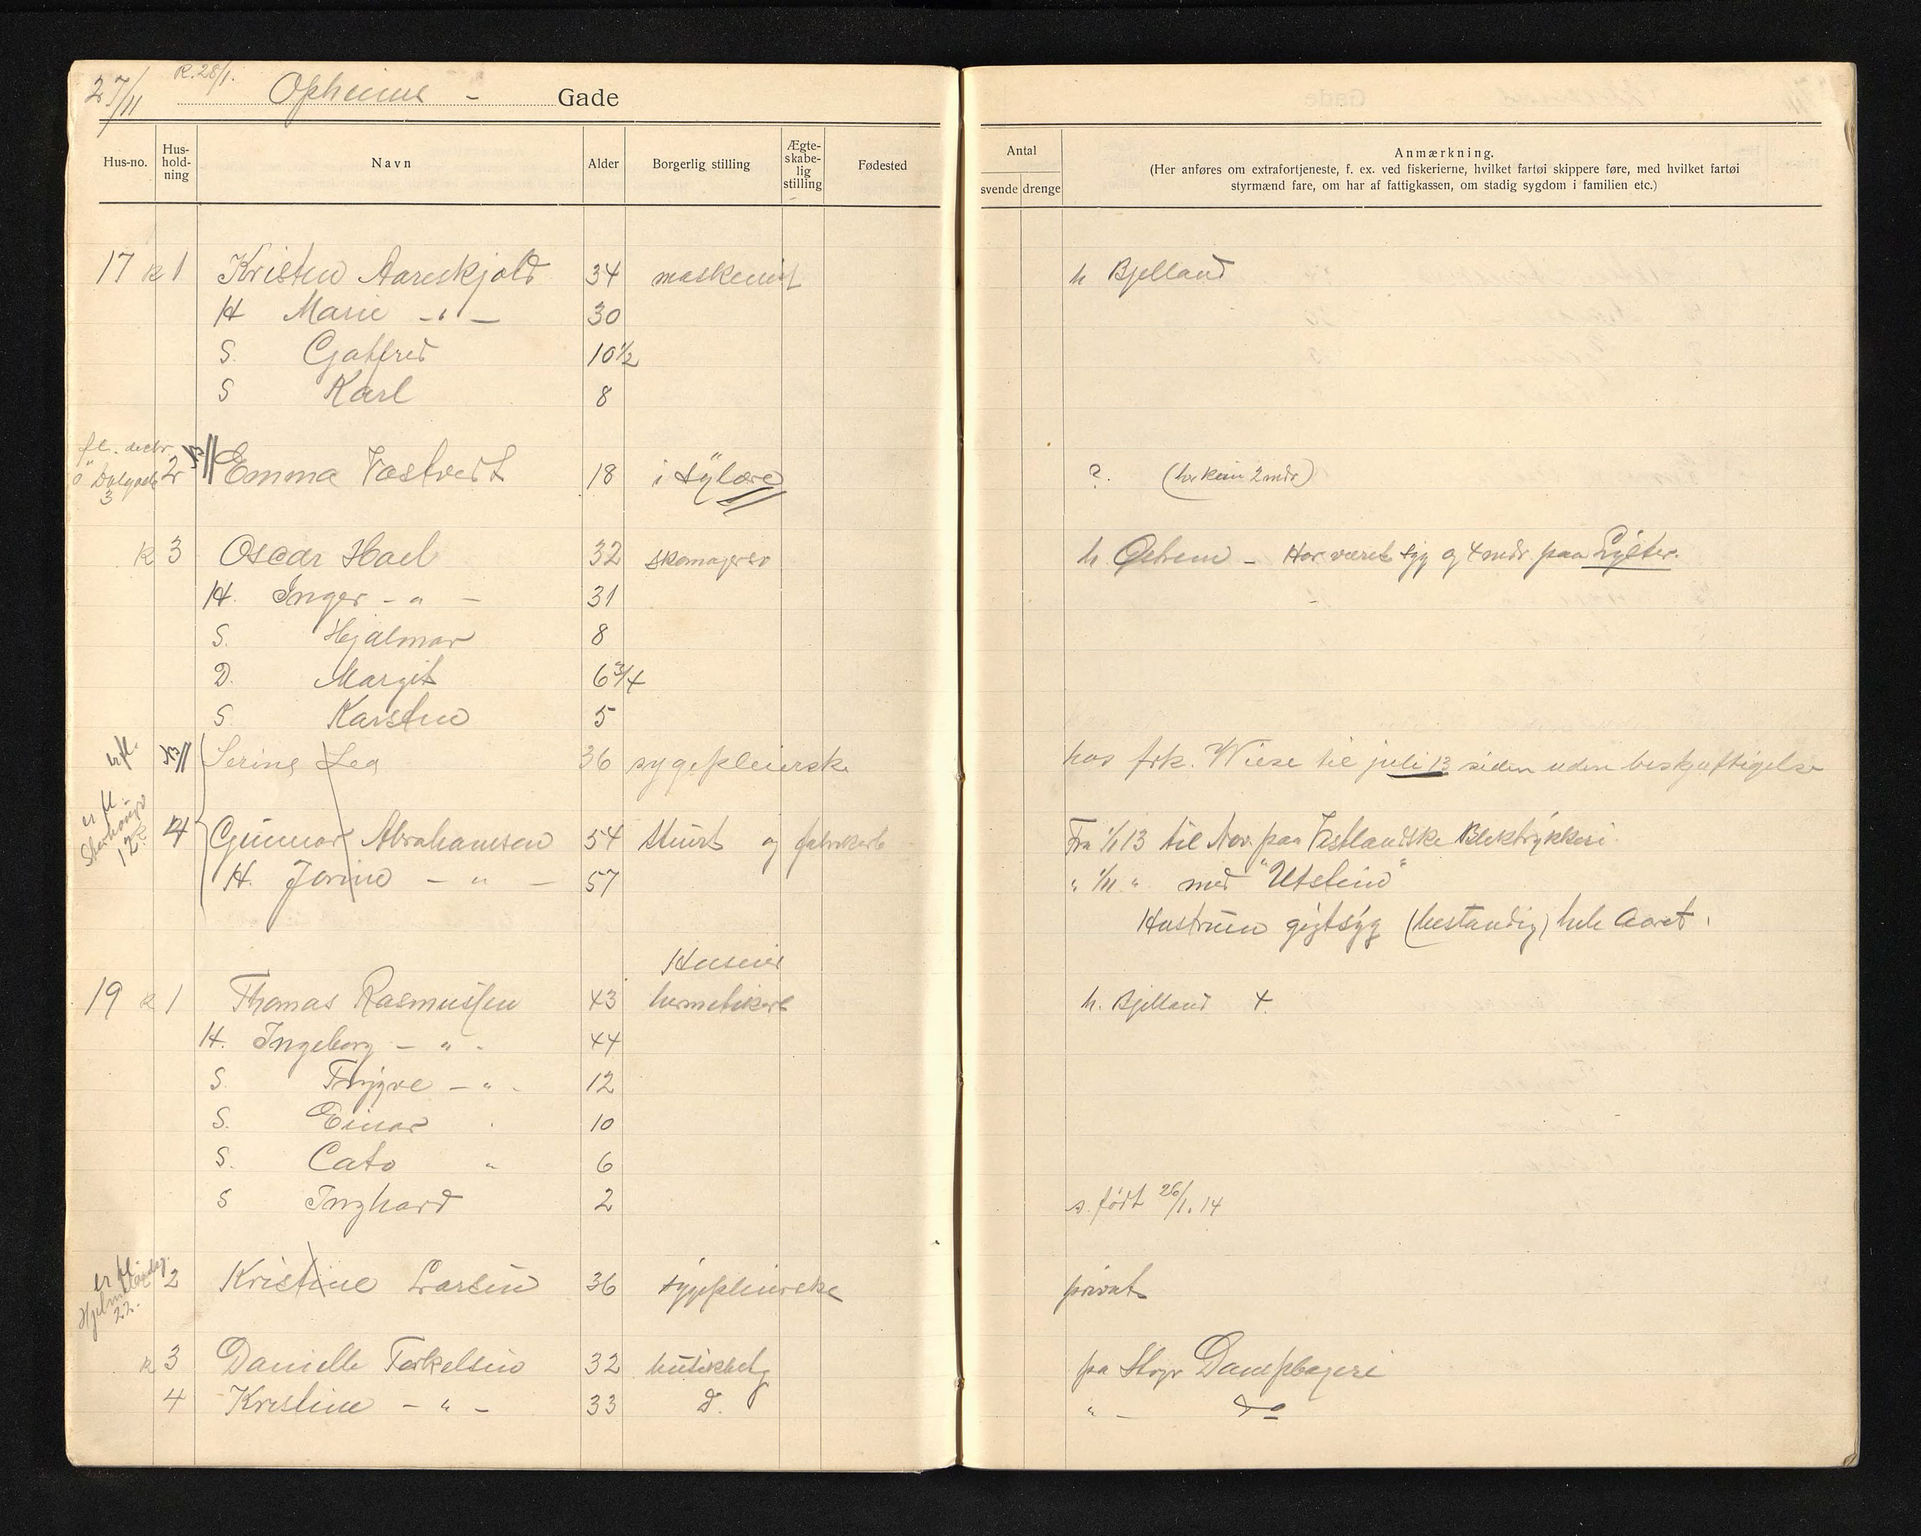 27/11 R. 28/1. Opheims - Gade
Hus-no. Hus-hold-ning Navn Alder Borgerlig stilling Ægte-skabe-lig stilling Fødested
Antal svende drenge
Anmærkning.
(Her anføres om extrafortjeneste, f. ex. ved fiskerierne, hvilket fartøi skippere føre, med hvilket fartøi
styrmænd fare, om har af fattigkassen, om stadig sygdom i familien etc.)
17 R 1 Kristen Aareskjold 34 maskenist h Bjelland
H Marie - " - 30
S. Gotfred 10½
S Karl 8
fl.
2 Emma Tastvedt 18 i sylære ? (her kun 2 mdr)
3
R 3 Oscar Hoel 32 skomagersv h. Østrem - Har været syg og 4 mdr paa Lyster.
H. Inger - " - 31
S. Hjalmar 8
D. Margit 6¾
S Karsten 5
Serine Lea 36 sygepleierske hos frk. Wiese til juli 13 siden uden beskjæftigelse
er fl.
12 R 4 Gunnar Abrahamsen 54 stuert og fabrikarb Fra 1/1 13 til Nov. paa Vestlandske Bliktrykkeri.
H. Jorine - " - 57 " 1/11 " med "Utstein"
Hustruen gigtsyg (bestandig) hele Aaret.
Huseier
19 R 1 Thomas Rasmussen 43 hermetikarb h. Bjelland 4.
H. Ingeborg - " - 44
S. Trygve - " - 12
S. Einar " 10
S. Cato " 6
S Inghard 2 s. født 26/1. 14
er fl. Hjelmelandsg. 22.
2 Kristine Larsen 36 sygepleierske privat
R 3 Danielle Torkelsen 32 butikbetj pa Stavr Dampbageri
4 Kristine - " - 33 D. " - do